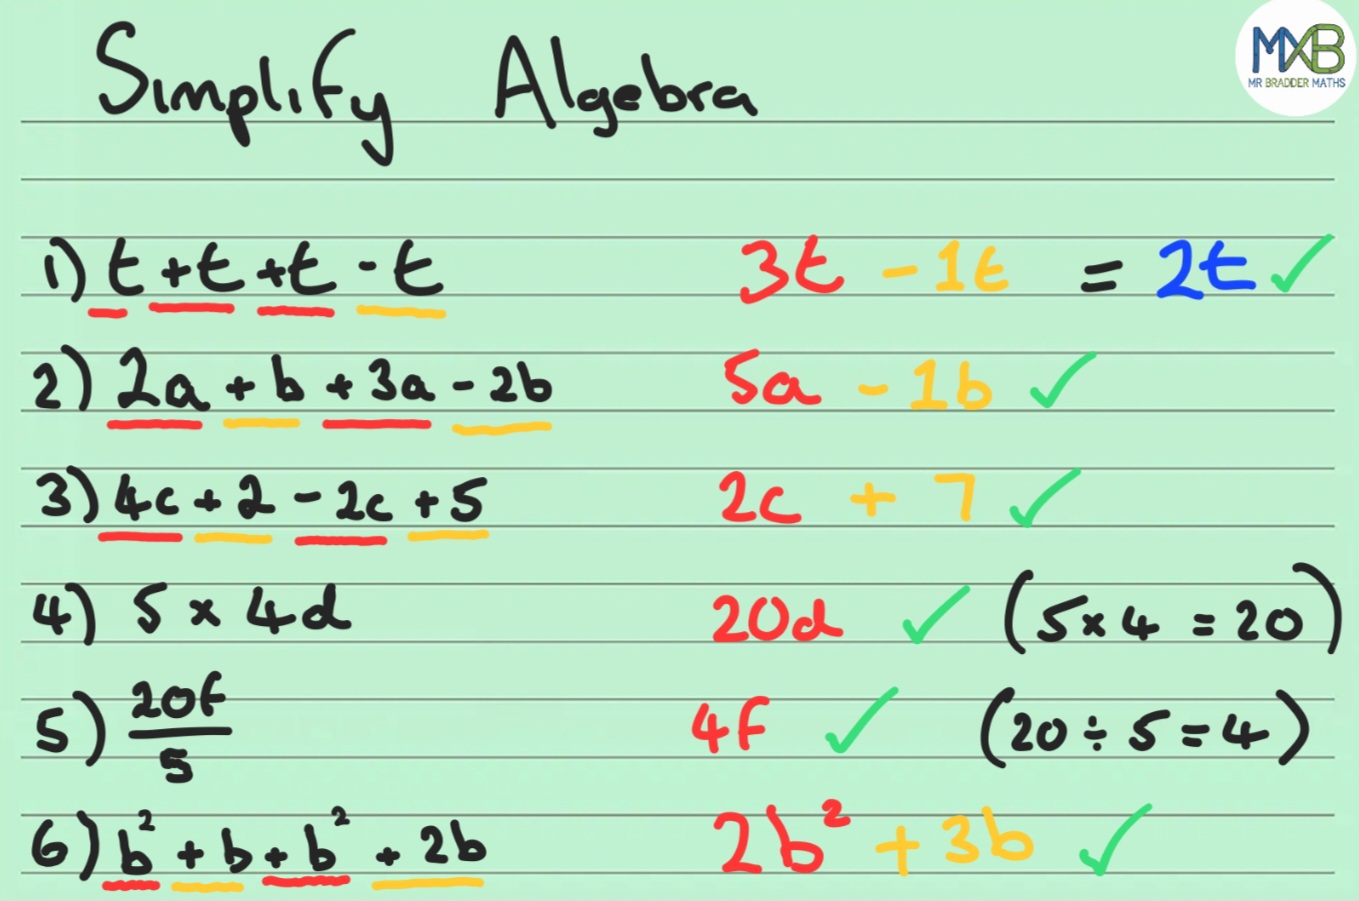 Simplify Algebra
MXB
MR BRADDER MATHS
1) t + t + t - t 3t - 1t = 2t ✓
2) 2a + b + 3a - 2b 5a - 1b ✓
3) 4c + 2 - 2c + 5 2c + 7 ✓
4) 5 × 4d 20d ✓ (5 × 4 = 20)
5) 20f/5 4f ✓ (20 ÷ 5 = 4)
6) b² + b + b² + 2b 2b² + 3b ✓